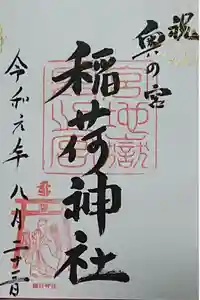 祝
奥の宮
稲荷神社
令和元年八月二十二日